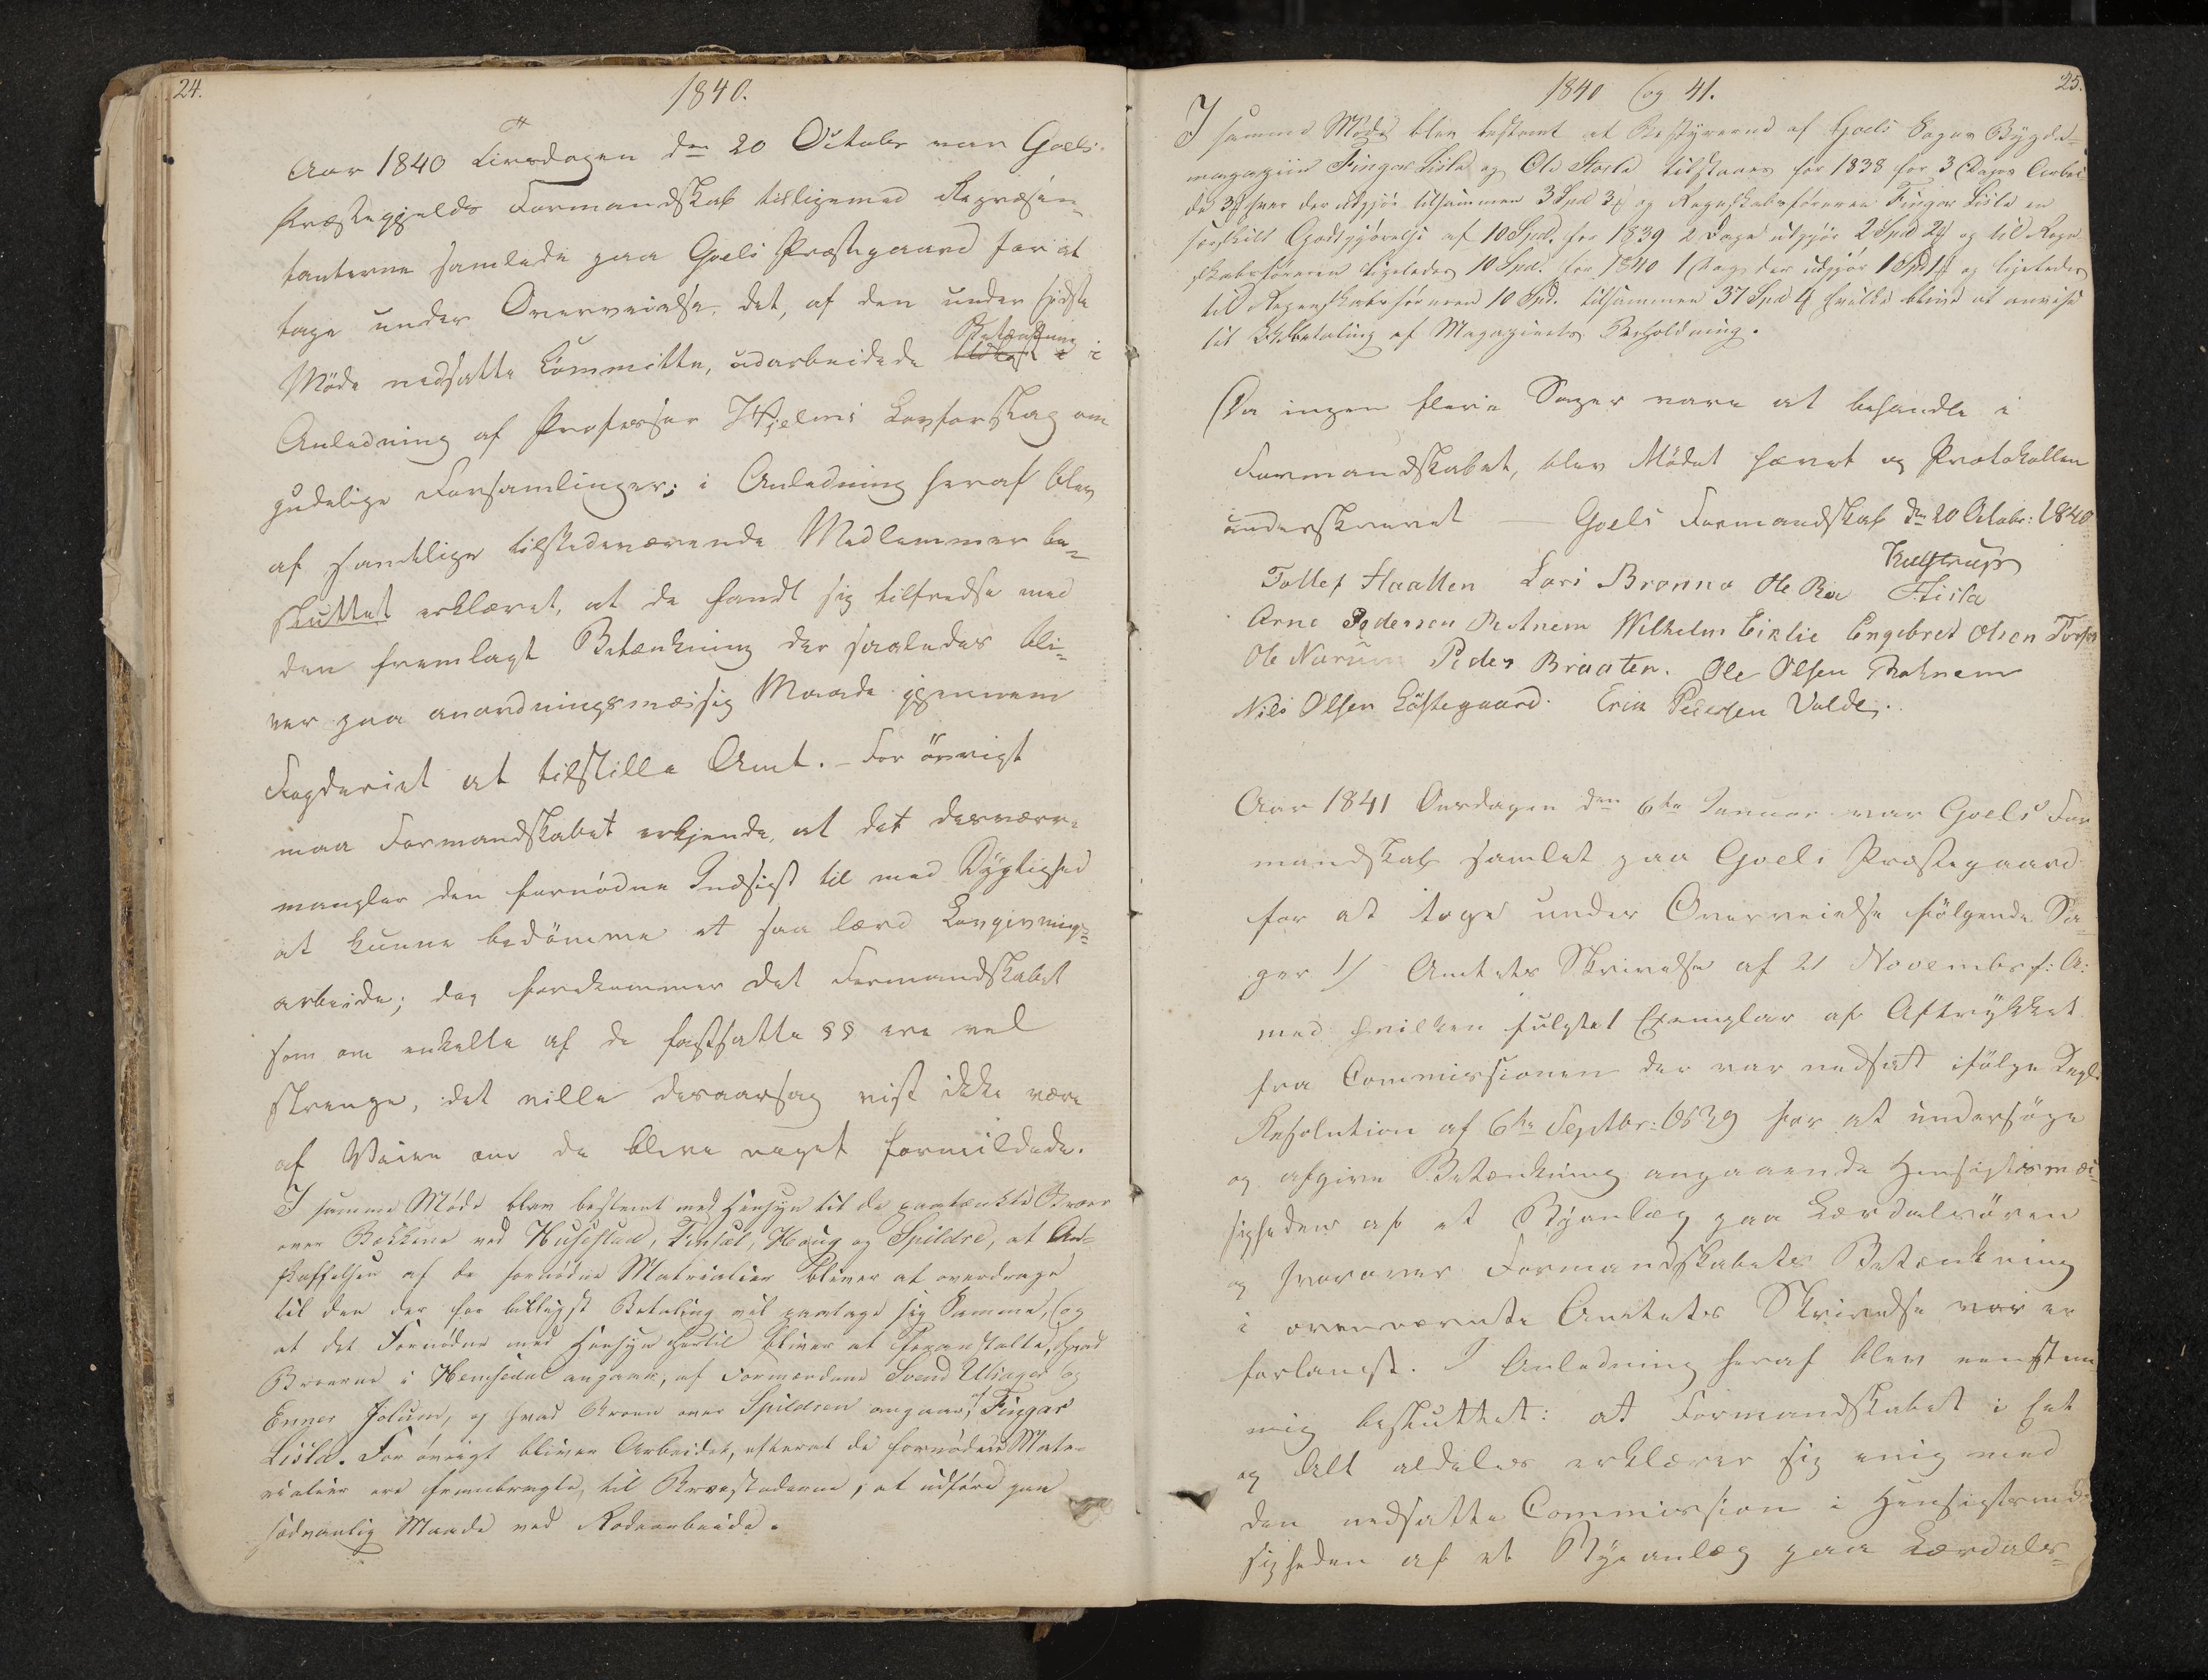 24.
1840.
Aar 1840 Tirsdagen den 20 Octobr var Goels
Præstegjelds Formandskab tilligemed Repræsen-
tanterne samlede paa Goels Præstegaard for at
tage under Overveielse, det, af den under sidste
Møde nedsatte Committe, udarbeidede Betænkning i
Anledning af Professor Hjelms Lovforslag om
gudelige Forsamlinger; i Anledning heraf blev
af samtlige tilstedeværende Medlemmer be-
sluttet erklæret, at de fandt sig tilfredse med
den fremlagt Betænkning der saaledes bli-
ver paa anordningsmæssig Maade igjennem
Fogderiet at tilstille Amt. – For øvrigt
maa Formandskabet erkjende, at det desværre
mangler den fornødne Indsigt til med Dygtighed
at kunne bedømme et saa lærd Lovgivnings-
arbeide; dog forekommer det Formandskabet
som om enkelte af de fastsatte §§ ere vel
strenge, det ville desaarsag vist ikke være
af Veien om de bleve noget formildede.
I samme Møde blev bestemt med Hensyn til de paatænkte Broer
over Bækkene ved Huseslad, Tinsæl, Houg og Spildre, at An-
skaffelsen af de fornødne Materialier bliver at overdrage
til den der for billigst Betaling vil paatage sig Samme, og
at det Fornødne med Hensyn hertil bliver at foranstalte, hvad
Broerne i Hemsedal angaar, af Formændene Svend Ulsager og
Enner Jolum, og hvad Broen over Spildren angaar, af Fingar
Lisla. For øvrigt bliver Arbeidet, efterat de fornødne Mate-
rialier ere frembragte til Broestederne, at udføre paa
sædvanlig Maade ved Rodearbeide.
1840 og 41.
25.
I samme Møde blev bestemt at Bestyrerne af Goels Sogns Bygde-
magazin Fingar Lisla og Ole Storla tilstaaes for 1838 for 3 Dages Arbei-
de 3 hver der udgjør tilsammen 3 Spd 3 og Regnskabsføreren Fingar Lisla en
særskilt Godtgjørelse af 10 Spd. for 1839 2 Dage udgjør 2 Spd 2 og til Regn-
skabsføreren ligeledes 10 Spd. for 1840 1 Dag der udgjør 1 Spd 1 og ligeledes
til Regnskabsføreren 10 Spd. tilsammen 37 Spd hvilke blive at anvise
til Udbetaling af Magazinets Beholdning.
Da ingen flere Sager vare at behandle i
Formandskabet, blev Mødet hævet og Protokollen
underskrevet — Goels Formandskab den 20 Octobr: 1840
Kullstrup
Tollef Haatten Lars Brønno Ole Roe F. Lisla
Arne Pedersen Rotnem Wilhelm Eiklie Engebret Olsen
Ole Narum Peder Braaten. Ole Olsen Rotnem
Nils Olsen Løstegaard. Erik Pedersen Volde.
Aar 1841 Onsdagen den 6te Januar var Goels For
mandskab samlet paa Goels Præstegaard
for at tage under Overveielse følgende Sa-
ger 1) Amtets Skrivelse af 21 Novembr f: A:
med hvilken fulgte 1 Exemplar af Aftrykket
fra Commissionen der var nedsat ifølge Kgl.
Resolution af 6te Septbr: 1839 for at undersøge
og afgive Betænkning angaaende Hensigtsmæs-
sigheden af et Byanlæg paa Lærdalsøren
og hvorover Formandskabets Betænkning
i ovennævnte Amtets Skrivelse er
forlangt. I Anledning heraf blev eenstem
mig besluttet: at Formandskabet i Eet
og Alt aldeles erklærer sig enig med
den nedsatte Commission i Hensigtsmæs-
sigheden af et Byeanlæg paa Lærdals-